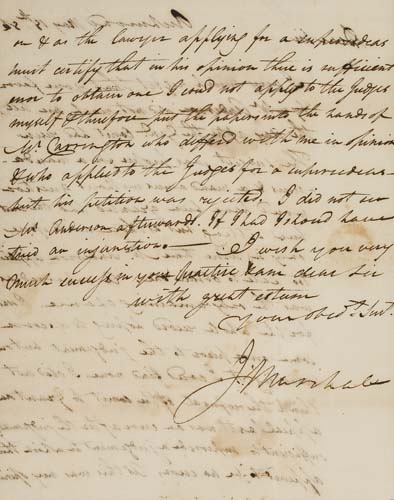 or & as the lawyer applying for a supersedeas
must certify that in his opinion there is sufficient
error to obtain one I could not apply to the Judges
myself & therefore put the papers into the hands of
Mr. Carrington who differd with me in opinion
& who applied to the Judges for a supersedeas
but his petition was rejected. I did not see
Mr Anderson afterwards. If I had I shoud have
tried an injunction. — I wish you very
much success in your practice & am dear Sir
with great esteem
Your Obedt. Servt.
J Marshall